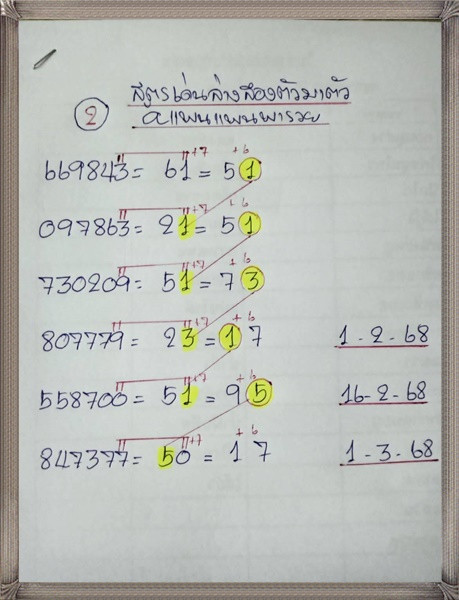 สูตรเด่นล่างสองตัวมาตัว
2 อ.แพนแพนพารวย
+7 +6
669843 = 61 = 51
+7 +6
097863 = 21 = 51
+7 +6
730209 = 51 = 73
+7 +6
807779 = 23 = 17 1-2-68
+7 +6
558700 = 51 = 95 16-2-68
+7 +6
847377 = 50 = 17 1-3-68